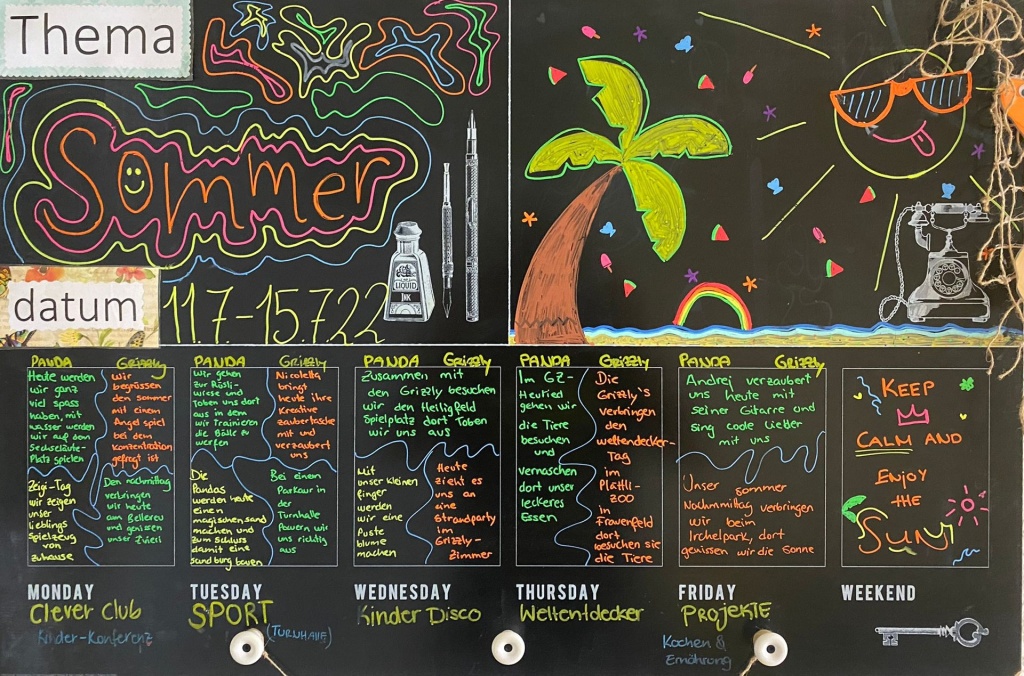 Thema
Sommer
datum
11.7-15.7.22
LIQUID
INK
PANDA
Grizzly
Heute werden
wir ganz
viel spass
haben, mit
wasser werden
wir auf dem
Sechseläute-
Platz spielen
wir
begrüssen
den sommer
mit einem
Angel spiel
bei dem
Konzentration
gefragt ist
Zeigi-Tag
wir zeigen
unser
Lieblings
Spielzeug
von
zuhause
Den nachmittag
verbringen
wir heute
am Bellevue
und genissen
unser Zvieri
MONDAY
Clever Club
Kinder-Konferenz
PANDA
Grizzly
Wir gehen
zur Rösli-
wiese und
Toben uns dort
aus in dem
wir Trainieren
die Bälle zu
werfen
Nicoletta
bringt
heute ihre
Kreative
zaubertasche
mit und
verzaubert
uns
Die
Pandas
werden heute
einen
magischen sand
machen und
zum schluss
damit eine
sand burg bauen
Bei einem
Parkour in
der
Turnhalle
Pauern wir
uns richtig
aus
TUESDAY
SPORT
(TURNHALLE)
PANDA
Grizzly
Zusammen mit
den Grizzly besuchen
wir den Heiligfeld
Spielplatz dort Toben
wir uns aus
Mit
unser kleinen
finger
werden
wir eine
Puste
blume
machen
Heute
zieht es
uns an
eine
Strandparty
im
Grizzly-
Zimmer
WEDNESDAY
Kinder Disco
PANDA
Grizzly
Im GZ-
Heuried
gehen wir
die Tiere
besuchen
und
vernaschen
dort unser
leckeres
Essen
Die
Grizzly's
verbringen
den
weltendecker-
Tag
im
Plättli-
zoo
in
Frauenfeld
dort
besuchen sie
die Tiere
THURSDAY
Weltentdecker
PANDA
Grizzly
Andrej verzaubert
uns heute mit
seiner Gitarre und
sing code Lieder
mit uns
Unser sommer
Nachmmittag verbringen
wir beim
Irchelpark, dort
genissen wir die Sonne
FRIDAY
PROJEKTE
Kochen &
Ernährung
KEEP
CALM AND
ENJOY
THE
SUN
WEEKEND